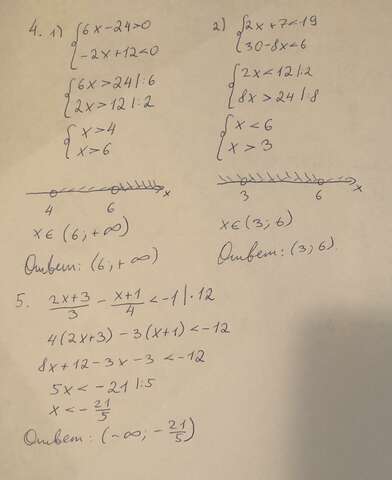 4. 1) { 6x-24>0
-2x+12<0
{ 6x>24 |:6
2x>12 |:2
{ x>4
x>6
4 6 x
x∈(6;+∞)
Ответ: (6;+∞)
2) { 2x+7<19
30-8x<6
{ 2x<12 |:2
8x>24 |:8
{ x<6
x>3
3 6 x
x∈(3;6)
Ответ: (3;6).
5. (2x+3)/3 - (x+1)/4 < -1 |·12
4(2x+3)-3(x+1)<-12
8x+12-3x-3<-12
5x<-21 |:5
x<-21/5
Ответ: (-∞; -21/5)